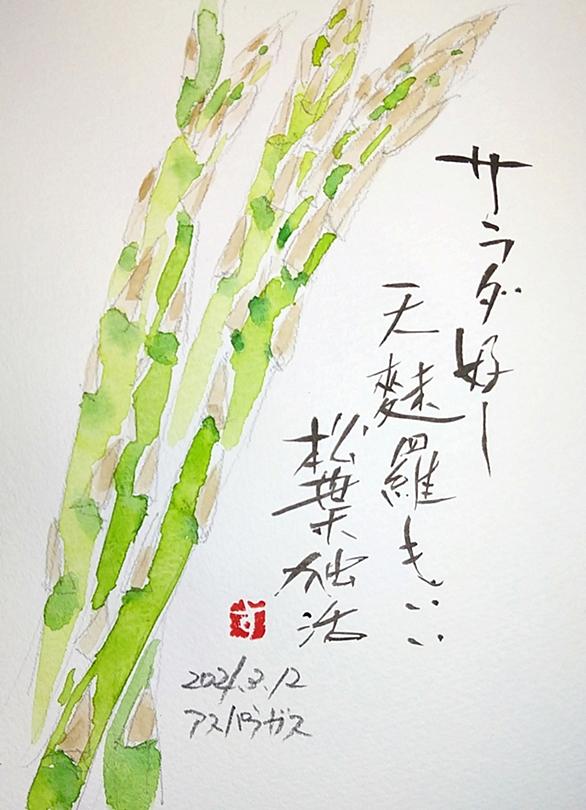 サラダ好し
天麩羅もいい
松葉独活
2021.3.12
アスパラガス